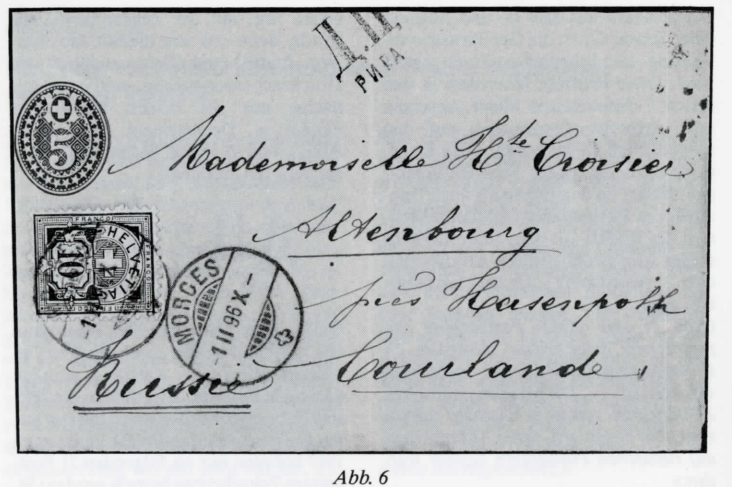 Д.П.
РИГА
5
Mademoiselle Hte Croisier
Altenbourg
près Hasenpoth
Courlande
Russie
FRANCO
HELVETIA
10
MORGES
-1 II 96 X-
Abb. 6